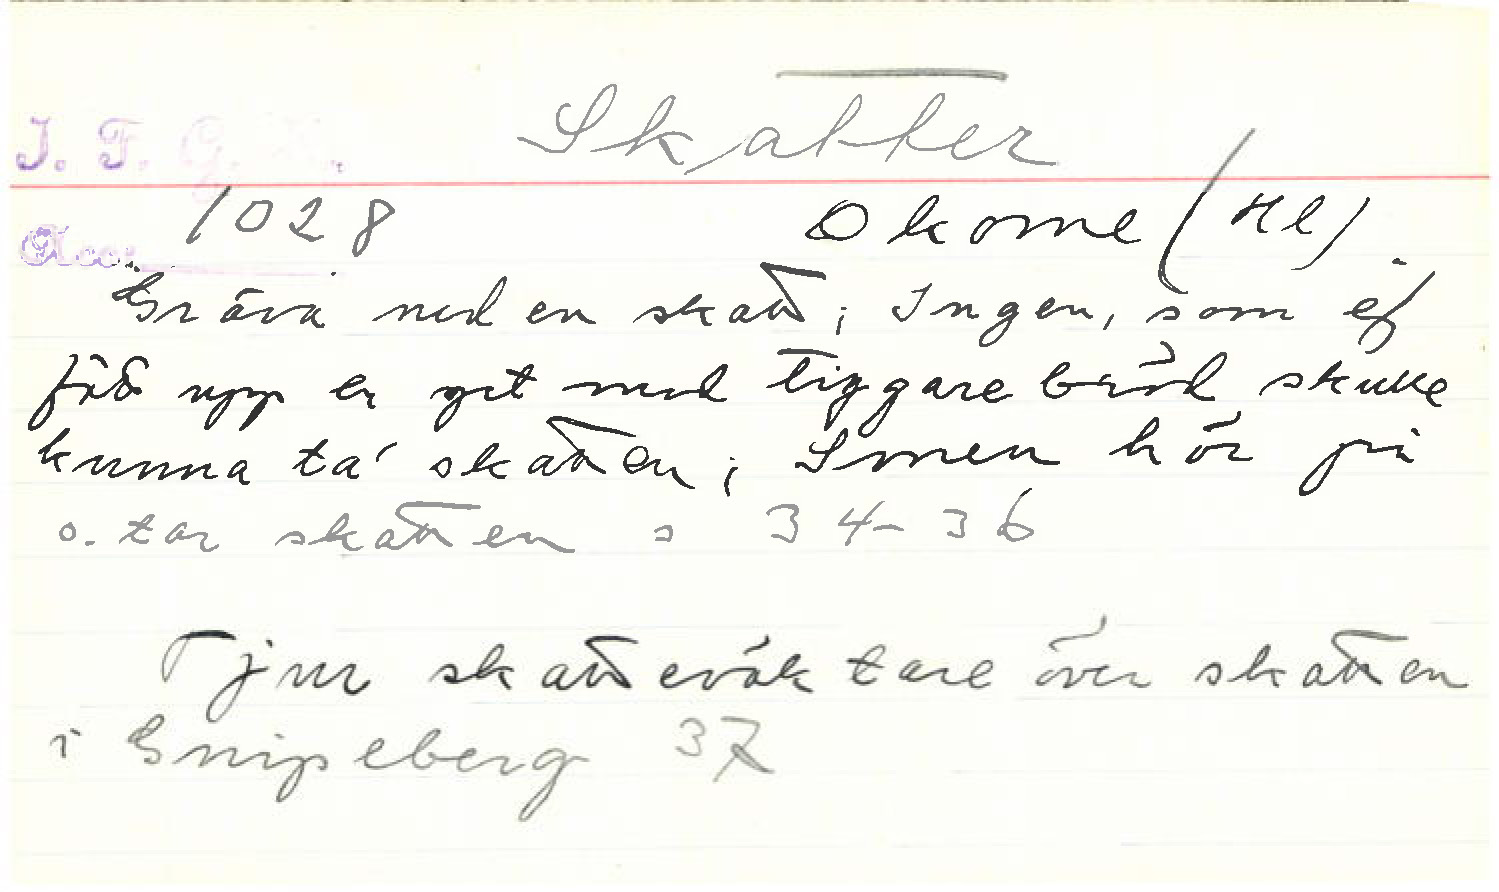 Skatter
I. F. G. H.
1028 Okome (Hl).
Acc.
Gräva ned en skatt; Ingen, som ej
föd upp en get med tiggarebröd skulle
kunna ta' skatten; Smen hör på
o. tar skatten s 34-36
Tjur skatteväktare över skatten
i Gnipeberg 37